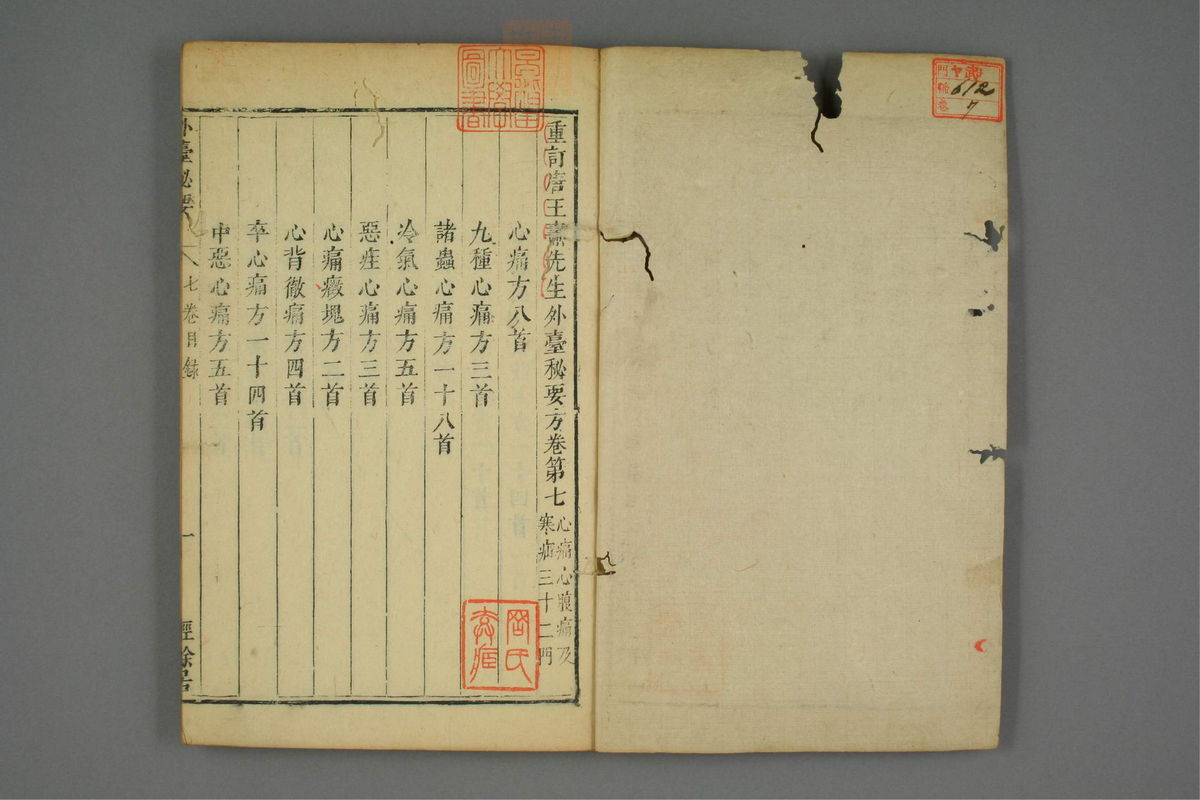 重訂唐王燾先生外臺秘要方卷第七
心痛心腹痛及
寒疝三十二門
心痛方八首
九種心痛方三首
諸蟲心痛方一十八首
冷氣心痛方五首
惡疰心痛方三首
心痛癥塊方二首
心背徹痛方四首
卒心痛方一十四首
中惡心痛方五首
外臺秘要
七卷目録
一
經餘居
圖書
612
7